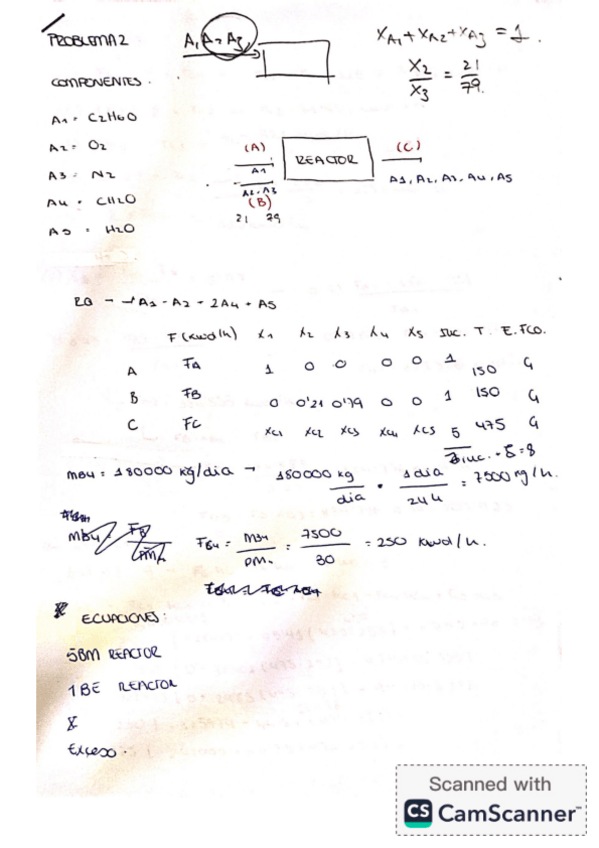 PROBLEMA 2
A1 A2 A3
XA1 + XA2 + XA3 = 1.
X2 / X3 = 21 / 79.
COMPONENTES.
A1 = C2H6O
A2 = O2
A3 = N2
A4 = CH2O
A5 = H2O
(A)
A1
A2, A3
(B)
21 79
REACTOR
(C)
A1, A2, A3, A4, A5
RQ → -A1 - A2 + 2A4 + A5
F (kmol/h) X1 X2 X3 X4 X5 INC. T. E.FCO.
A FA 1 0 0 0 0 1 150 G
B FB 0 0'21 0'79 0 0 1 150 G
C FC XC1 XC2 XC3 XC4 XC5 5 475 G
mB4 = 180000 kg/dia → 180000 kg / dia · 1 dia / 24 h = 7500 kg/h.
FB4 = mB4 / PM. = 7500 / 30 = 250 kmol/h.
ECUACIONES:
5BM REACTOR
1BE REACTOR
X
Exceso.
Scanned with
CS CamScanner